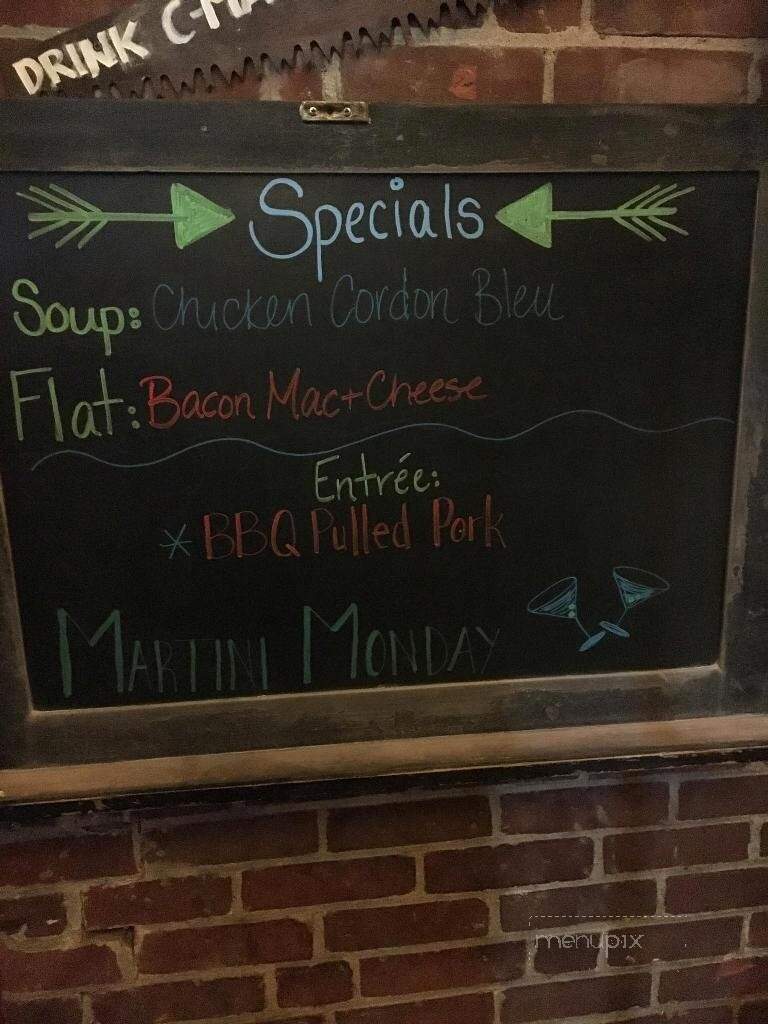 DRINK
Specials
Soup: Chicken Cordon Bleu
Flat: Bacon Mac + Cheese
Entrée:
* BBQ Pulled Pork
MARTINI MONDAY
menupix